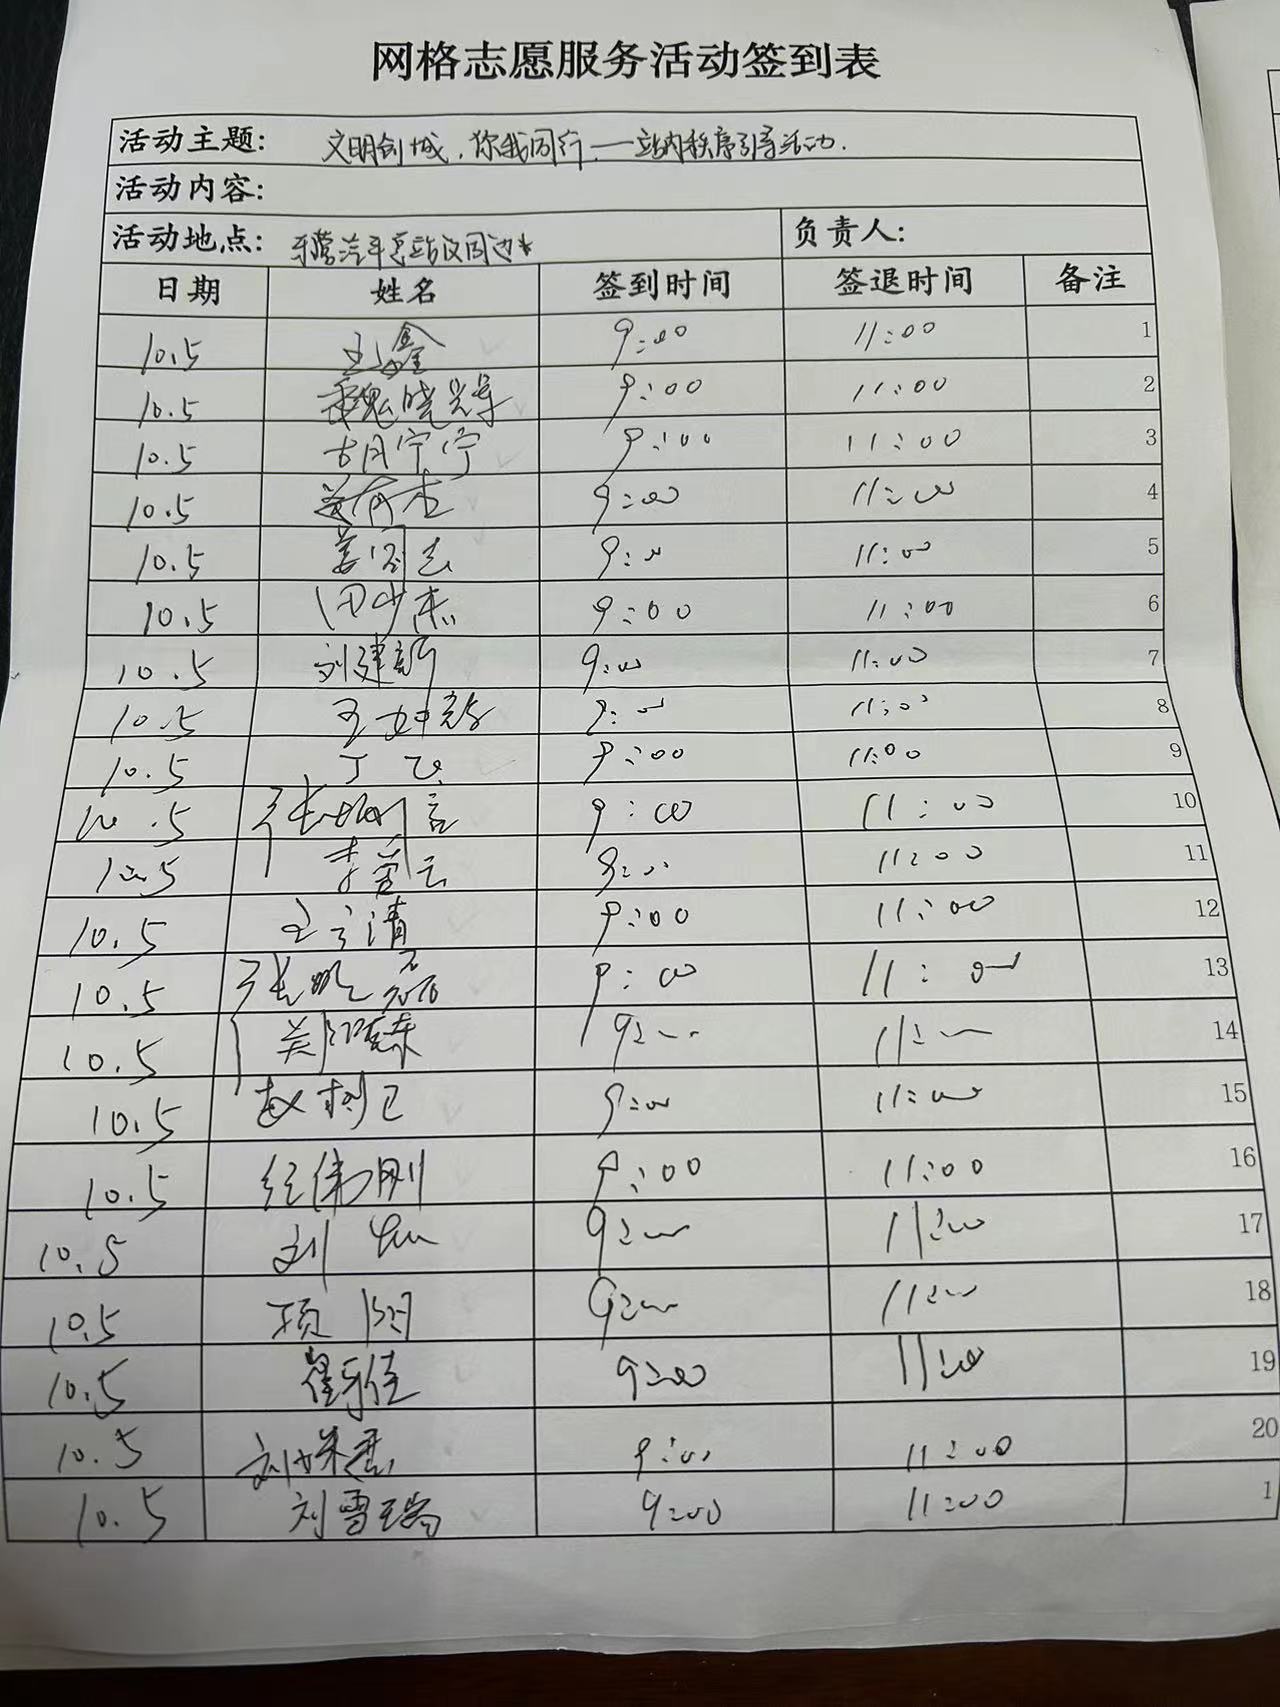 网格志愿服务活动签到表
活动主题: 文明创城,你我同行——站内秩序引导活动.
活动内容:
活动地点: 东营汽车总站及周边 负责人:
日期 姓名 签到时间 签退时间 备注
10.5 王鑫 9:00 11:00 1
10.5 魏晓 9:00 11:00 2
10.5 胡宁宁 9:00 11:00 3
10.5 9:00 11:00 4
10.5 姜国志 9:00 11:00 5
10.5 田少杰 9:00 11:00 6
10.5 刘建新 9:00 11:00 7
10.5 王 9:00 11:00 8
10.5 丁飞 9:00 11:00 9
10.5 张 9:00 11:00 10
10.5 李 云 9:00 11:00 11
10.5 王 清 9:00 11:00 12
10.5 张 磊 9:00 11:00 13
10.5 9:00 11:00 14
10.5 赵 9:00 11:00 15
10.5 经伟刚 9:00 11:00 16
10.5 刘 9:00 11:00 17
10.5 项阳 9:00 11:00 18
10.5 崔佳 9:00 11:00 19
10.5 刘姝君 9:00 11:00 20
10.5 刘雪瑞 9:00 11:00 1